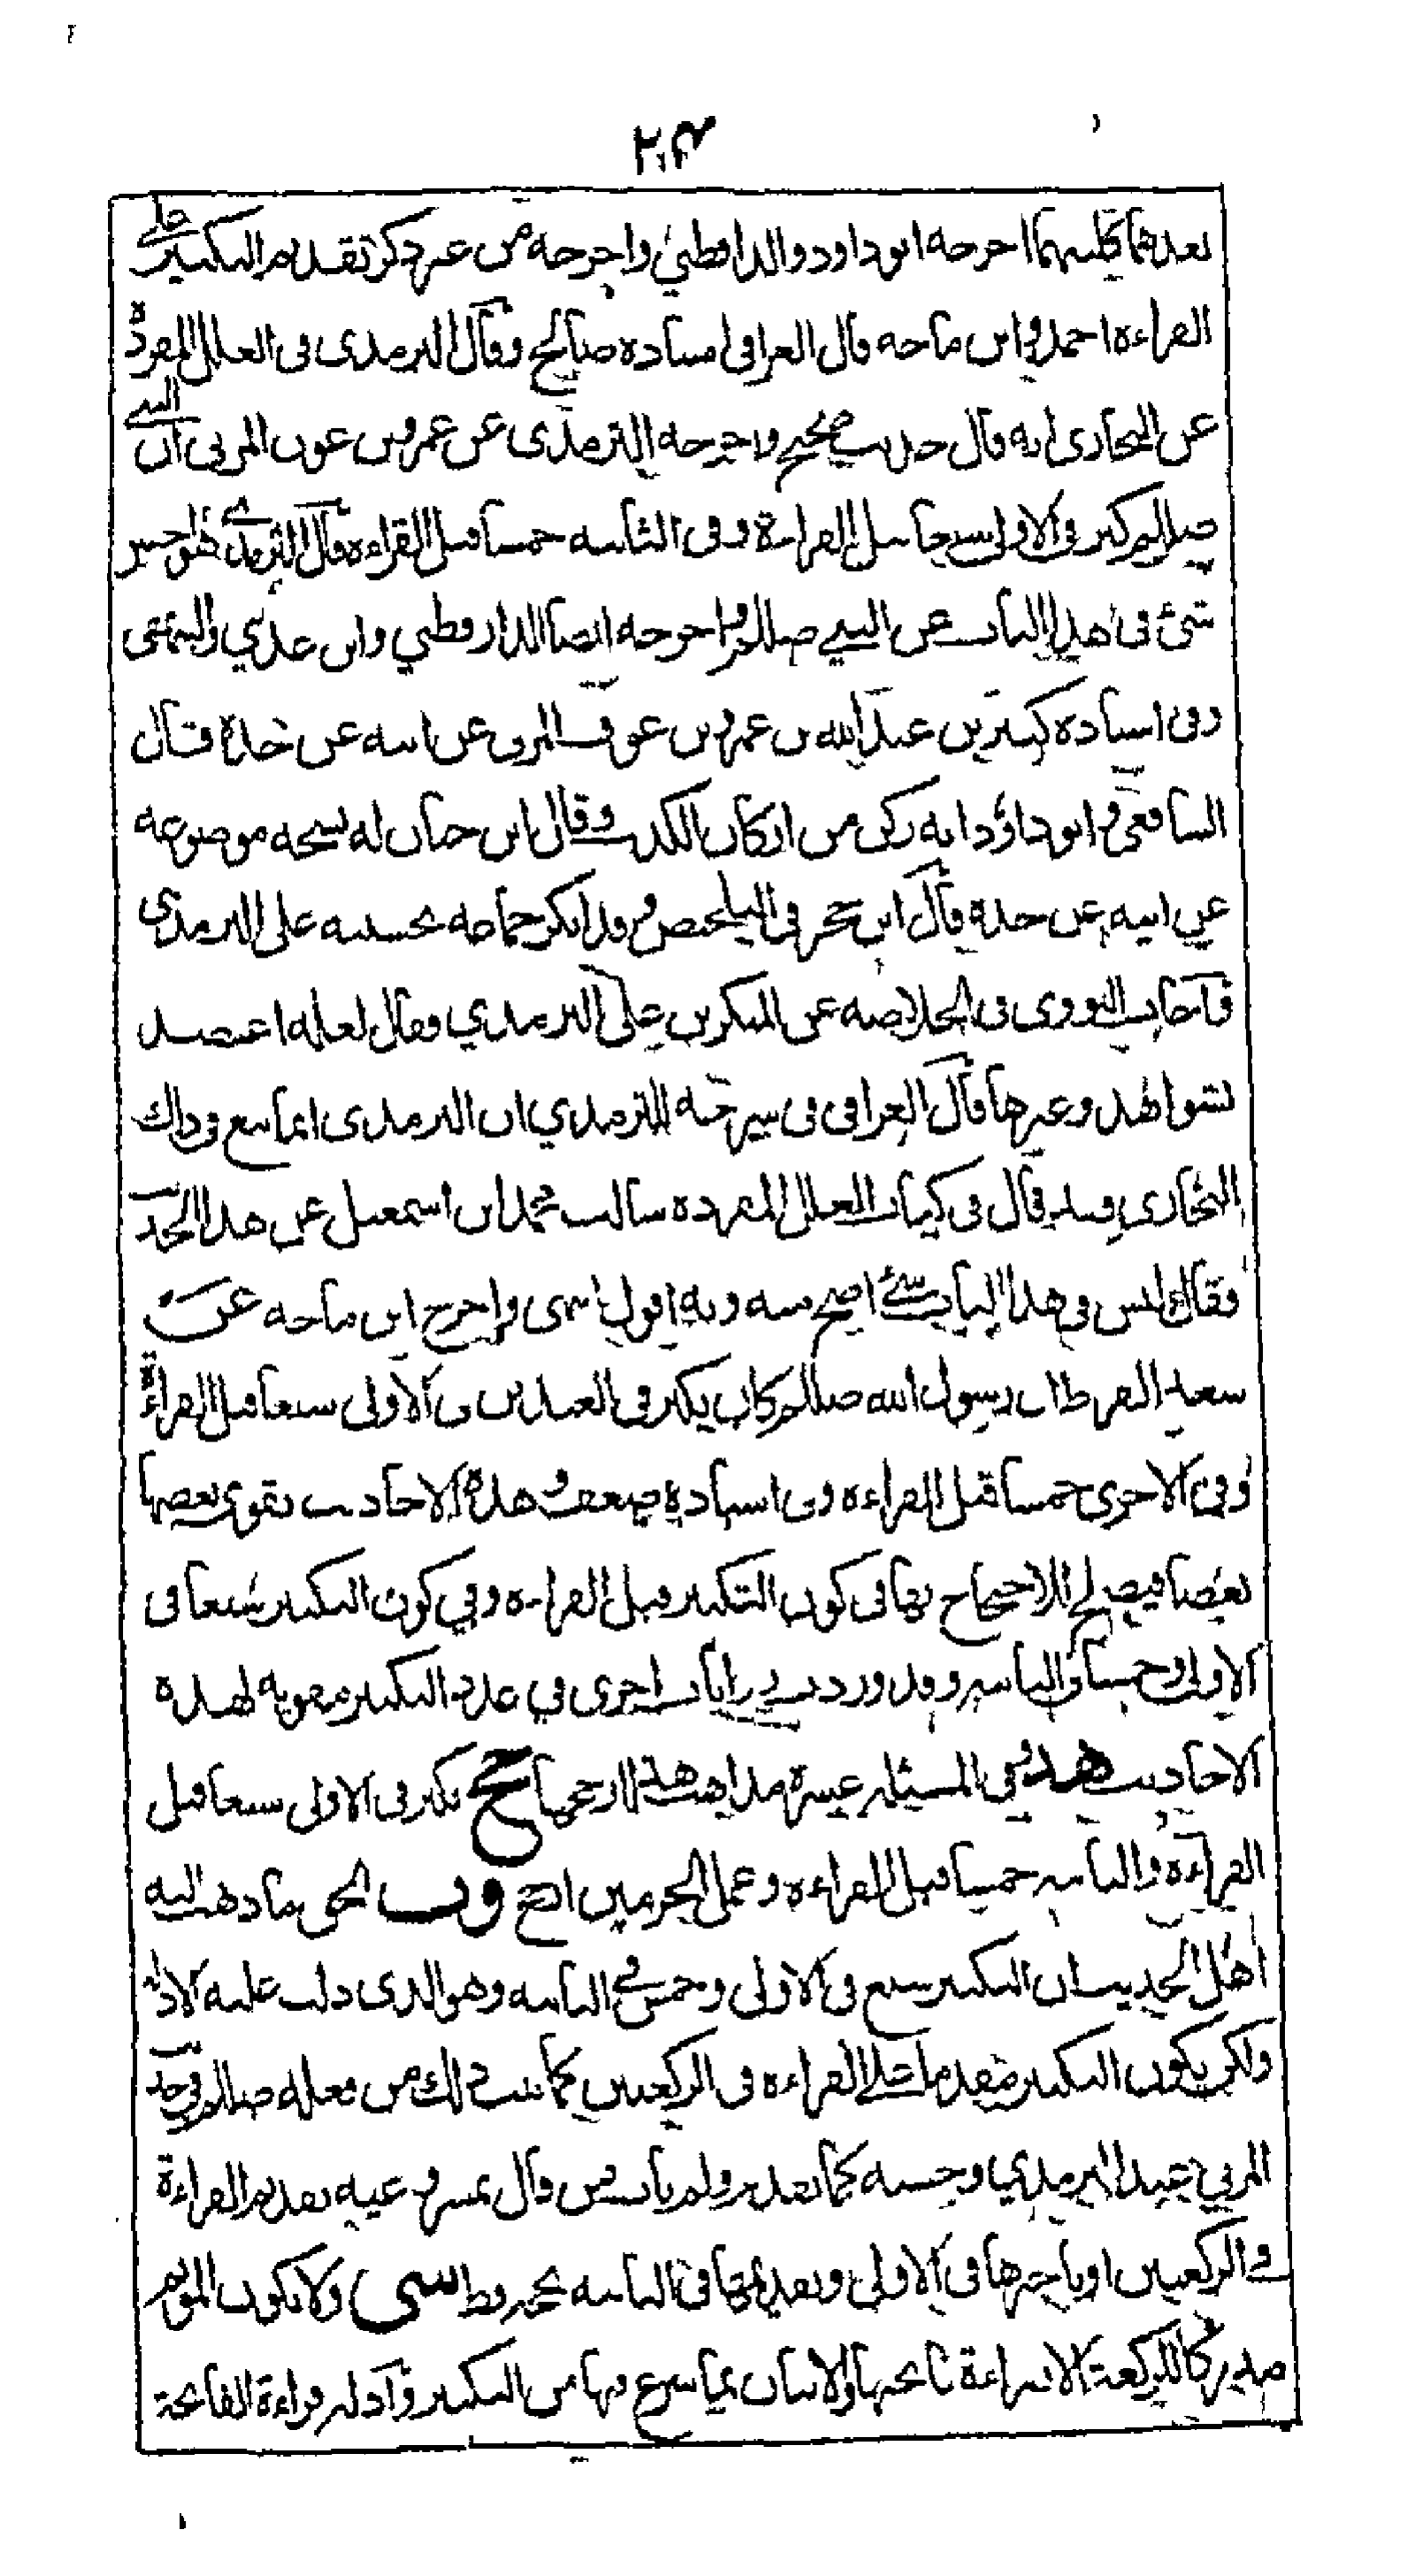 ٢٠٣
بعدهما كليهما اخرجه ابو داود والدارقطني واخرجه من غير ذكر تقديم التكبير على
القراءة احمد وابن ماجه قال العراقي اسناده صالح وقال الترمذي في العلل المفردة
عن البخاري انه قال حديث صحيح واخرجه الترمذي عن عمرو بن عوف المزني ان النبي
صللم كبر في الاولى سبعا قبل القراءة وفي الثانيه خمسا قبل القراءه قال الترمذي هو احسن
شئ في هذا الباب عن النبي صللم واخرجه ايضا الدارقطني وابن عدي والبيهقي
وفي اسناده كثير بن عبد الله بن عمرو بن عوف المزني عن ابيه عن جده قال
الشافعي وابو داؤد انه ركن من اركان الكذب وقال ابن حبان له نسخه موضوعه
عن ابيه عن جده قال ابن حجر في التلخيص وقد انكر جماعه تحسينه على الترمذي
فاجاب النووي في الخلاصه عن المنكرين على الترمذي وقال لعله اعتضد
بشواهد وغيرها قال العراقي في شرحه للترمذي ان الترمذي انما تبع في ذلك
البخاري وقد قال في كتاب العلل المفرده سالت محمد ابن اسمعيل عن هذا الحديث
فقال ليس في هذا الباب شئ اصح منه وبه اقول انتهى واخرج ابن ماجه عن
سعد القرظ ان رسول الله صللم كان يكبر في العيدين في الاولى سبعا قبل القراءة
وفي الاخرى خمسا قبل القراءه وفي اسناده ضعف وهذه الاحاديث يقوى بعضها
بعضا فيصلح للاحتجاج بها في كون التكبير قبل القراءه وفي كون التكبير سبعا في
الاولى وخمسا في الثانيه وقد وردت روايات اخرى في عدد التكبير مقويه لهذه
الاحاديث هذا وفي المسئله عشرة مذاهب هذا ارجحها يكبر في الاولى سبعا قبل
القراءة والثانيه خمسا قبل القراءه وعمل الحرمين الحق ما ذهب اليه
اهل الحديث ان التكبير سبع في الاولى وخمس في الثانيه وهو الذي دلت عليه الادله
ولكن يكون التكبير متقدما على القراءه في الركعتين كما ثبت ذلك من فعله صللم في حديث
المزني عند الترمذي وحسنه كما تقدم ولم يات من قال بمشروعيه تقديم القراءة
في الركعتين او تاخيرها في الاولى وتقديمها في الثانيه بحجه قط ولا يكون المؤتم
مدركا للركعة الا بقراءة فاتحتها والاتيان بما شرع فيها من التكبير وادله قراءة الفاتحة